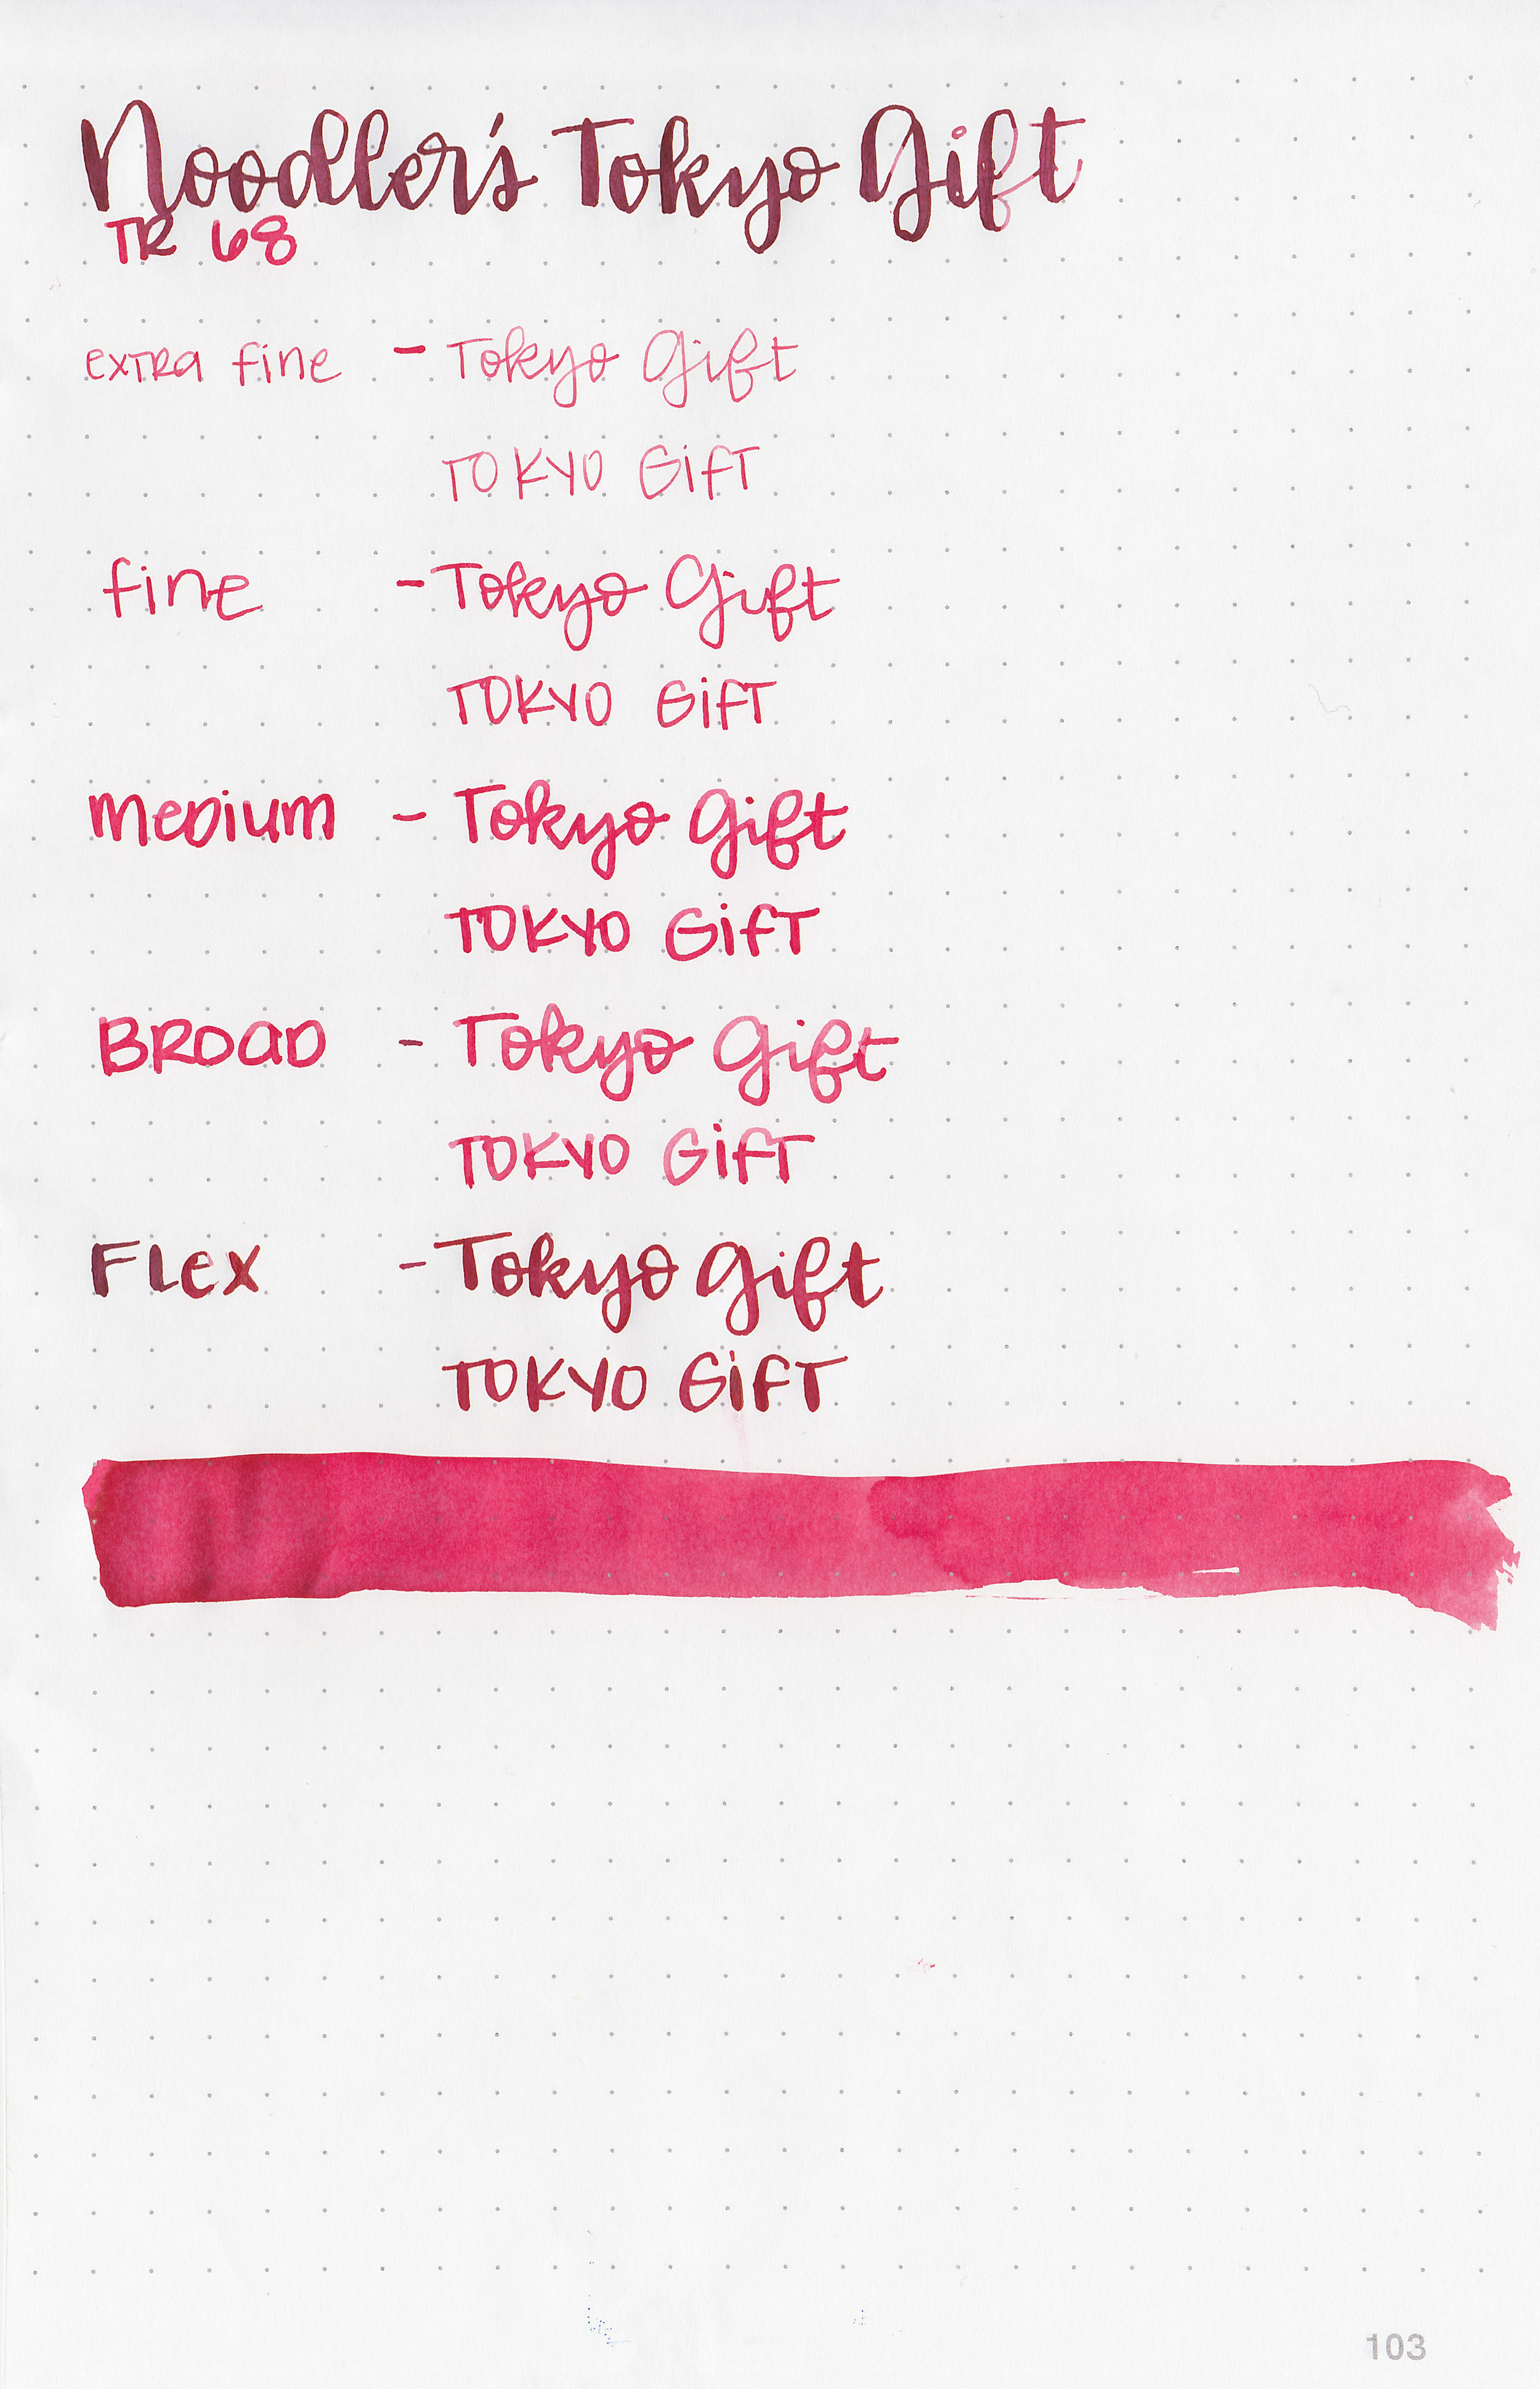 Noodler's Tokyo Gift
TR 68
extra fine - Tokyo Gift
TOKYO GifT
fine - Tokyo Gift
TOKYO GifT
medium - Tokyo Gift
TOKYO GifT
BROAD - Tokyo Gift
TOKYO GifT
FLex - Tokyo Gift
TOKYO GifT
103